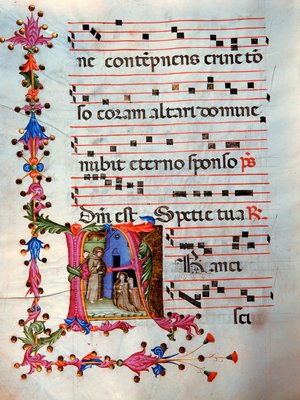 ne contēpnens crine tō
so coram altari domine
nubit eterno sponso ps
Dm̄ est Specie tua R.
ranci
sci